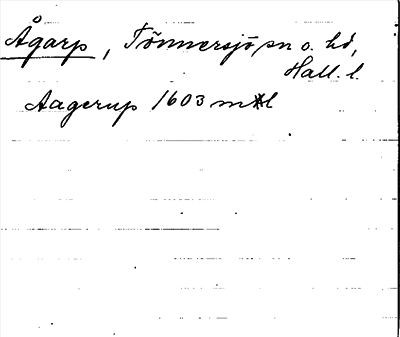 Ågarp, Tönnersjö sn o. hd,
Hall. l.
Aagerup 1603 ml